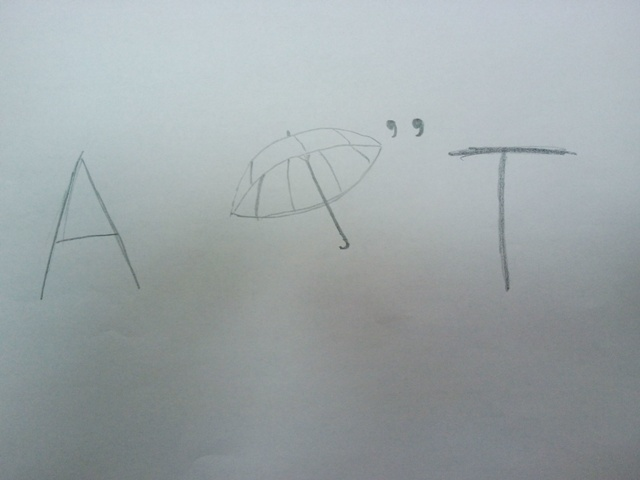 A ,, T